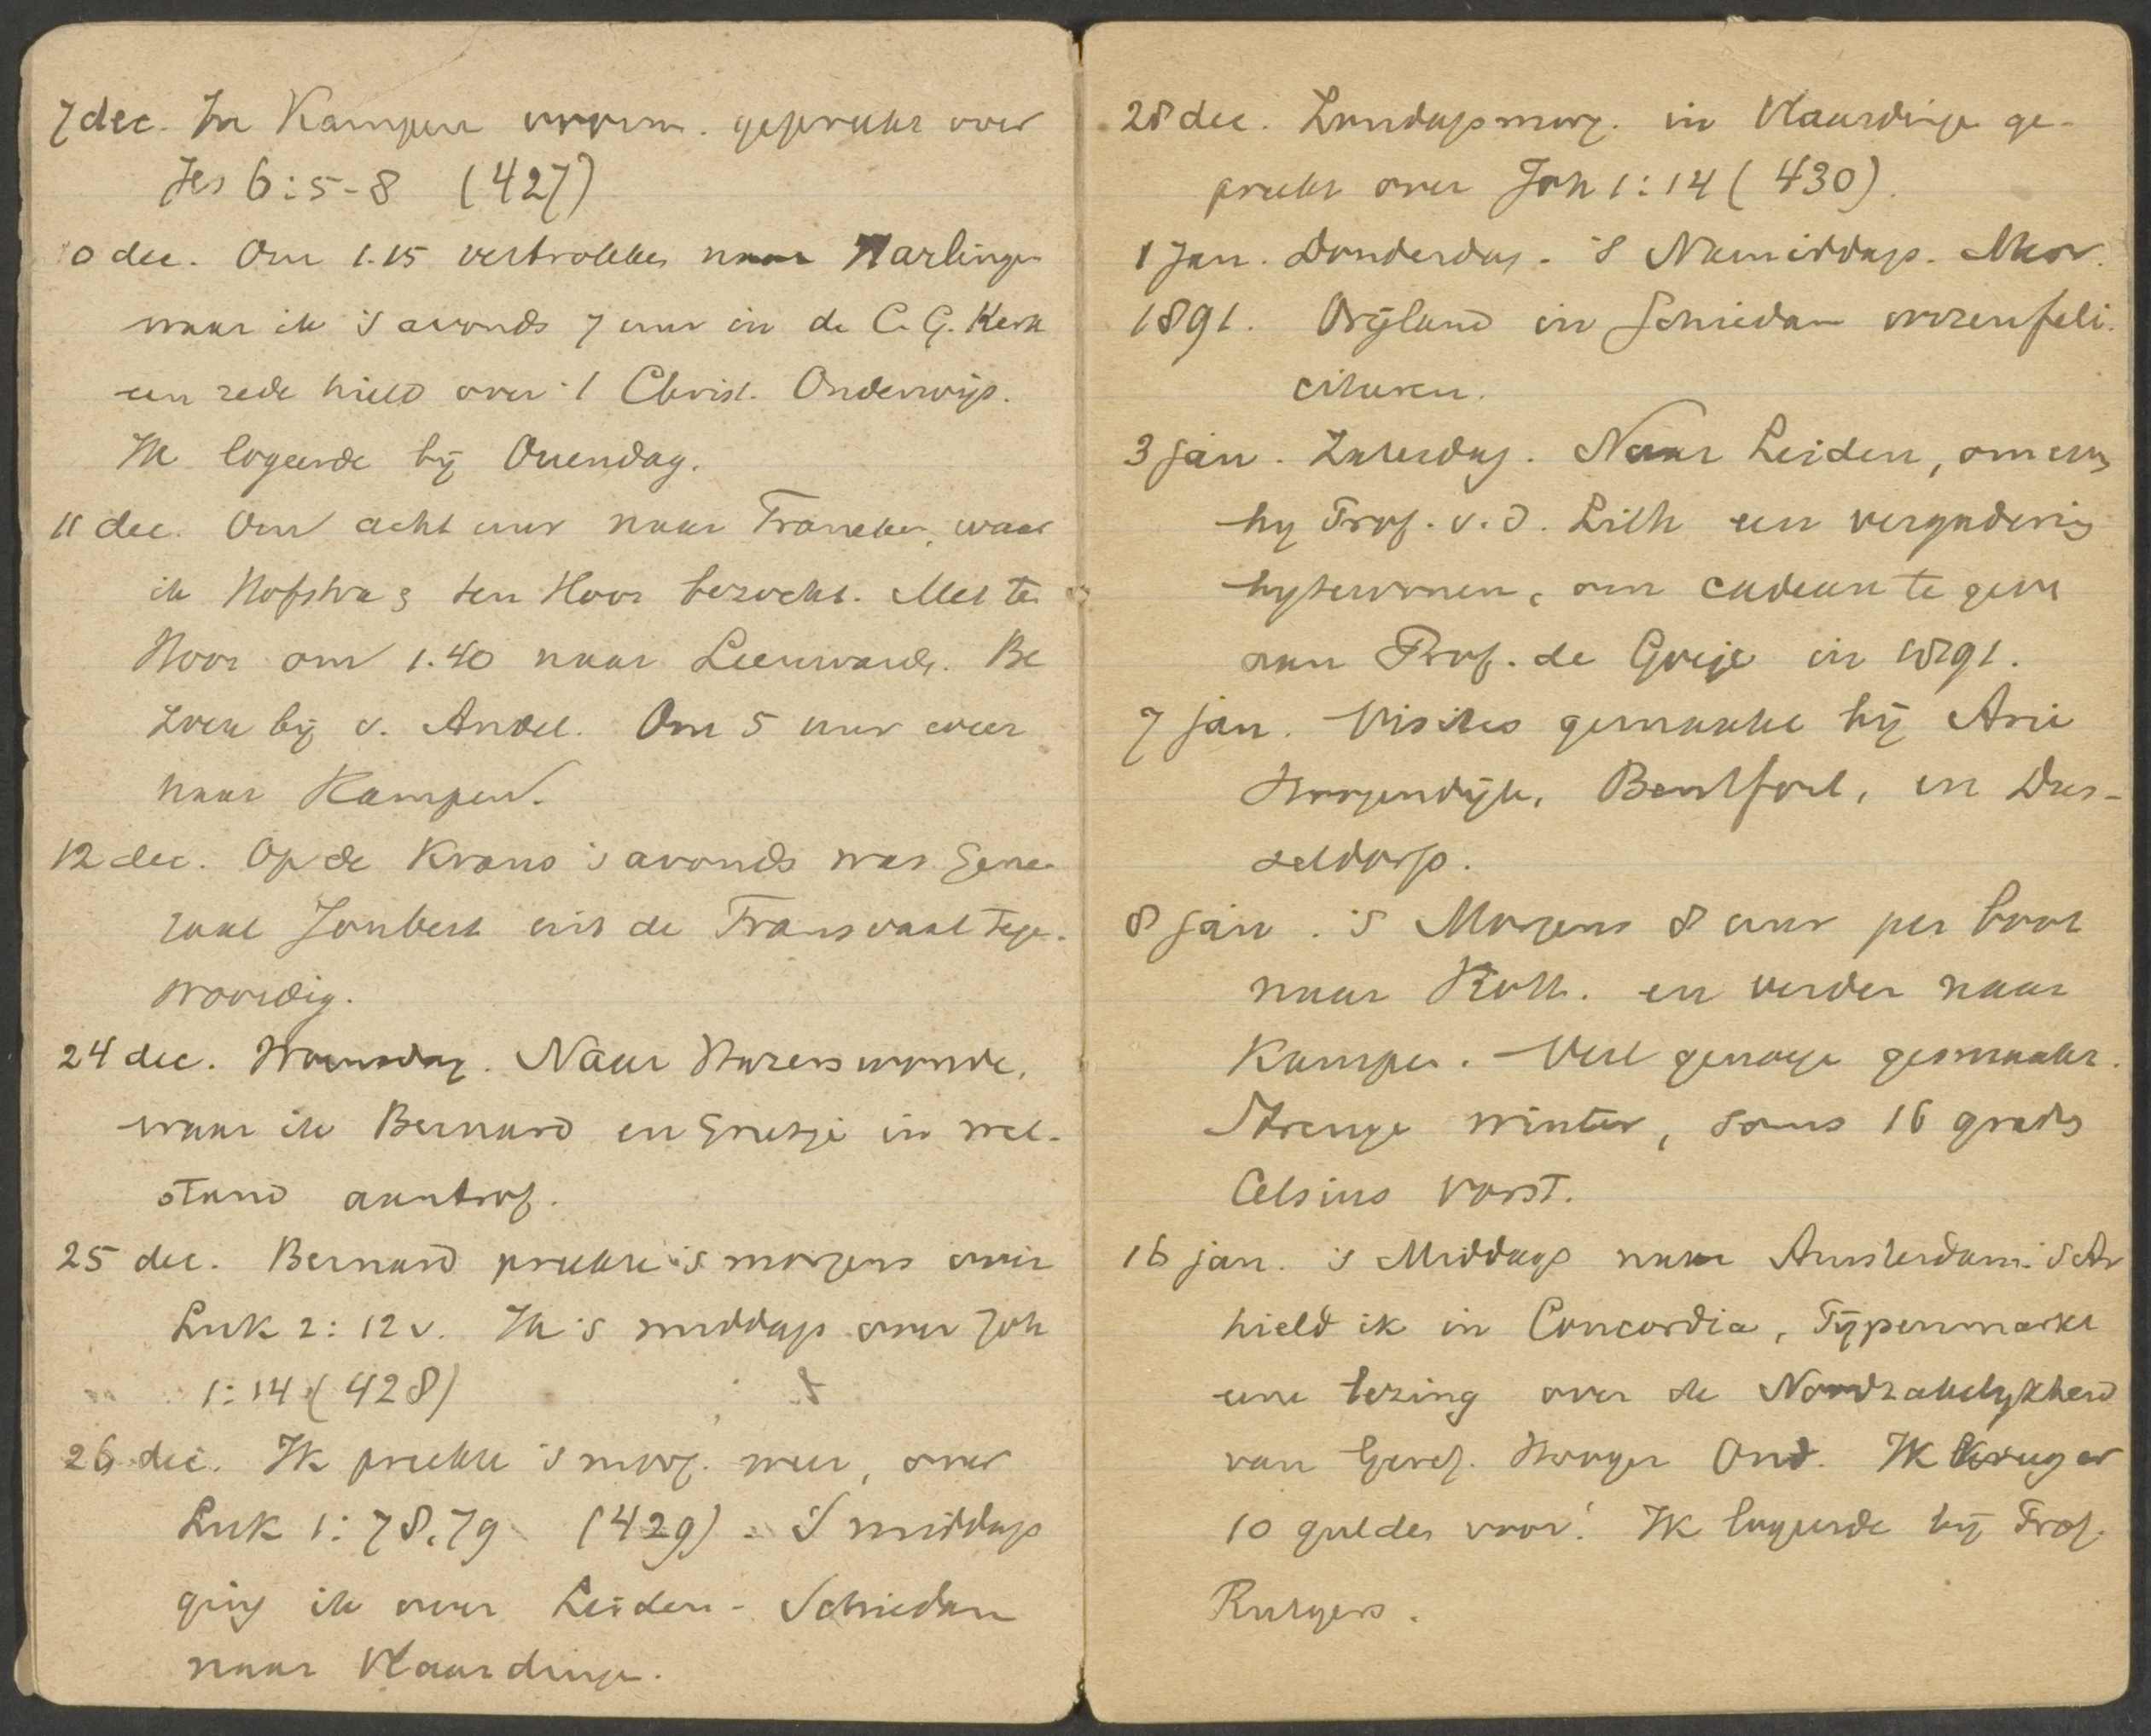 7 dec. In Kampen voorm. gepreekt over
Jes 6:5-8 (427)
10 dec. Om 1.15 vertrokken naar Harlingen
waar ik 's avonds 7 uur in de C. G. Kerk
een rede hield over 't Christ. Onderwijs.
Ik logeerde bij Ouendag.
11 dec. Om acht uur naar Franeker, waar
ik Hofstra & ten Hoor bezocht. Met ten
Hoor om 1.40 naar Leeuward. Be
zoek bij v. Andel. Om 5 uur weer
naar Kampen.
12 dec. Op de Krans 's avonds was Gene-
raal Joubert uit de Transvaal tegen-
woordig.
24 dec. Woensdag. Naar Hazerswoude,
waar ik Bernard en Grietje in wel-
stand aantrof.
25 dec. Bernard preekte 's morgens over
Luk 2: 12 v. Ik 's middags over Joh
1:14 (428)
26 dec. Ik preekte 's morg. weer, over
Luk 1: 78,79 (429). 's middags
ging ik over Leiden - Schiedam
naar Vlaardingen.
28 dec. Zondagsmorg. in Vlaardingen ge-
preekt over Joh 1:14 (430).
1 Jan. Donderdag. 's Namiddags. Mevr.
1891. Vrijland in Schiedam wezen feli-
citeeren.
3 jan. Zaterdag. Naar Leiden, om eens
by Prof. v. d. Lith een vergadering
bytewonen, om cadeau te geven
aan Prof. de Goeje in 1891.
7 jan. Visites gemaakt bij Arie
Hoogendijk, Bentfort, en Dus-
seldorp.
8 jan. 's Morgens 8 uur per boot
naar Rott. en verder naar
Kampen. Veel genoegen gesmaakt.
Strenge winter, soms 16 graden
Celsius vorst.
16 jan. 's Middags naar Amsterdam. 's Av
hield ik in Concordia,
eene lezing over de Noodzakelykheid
van Geref. Hooger Ond. Ik kreeg er
10 gulden voor! Ik logeerde bij Prof.
Rutgers.